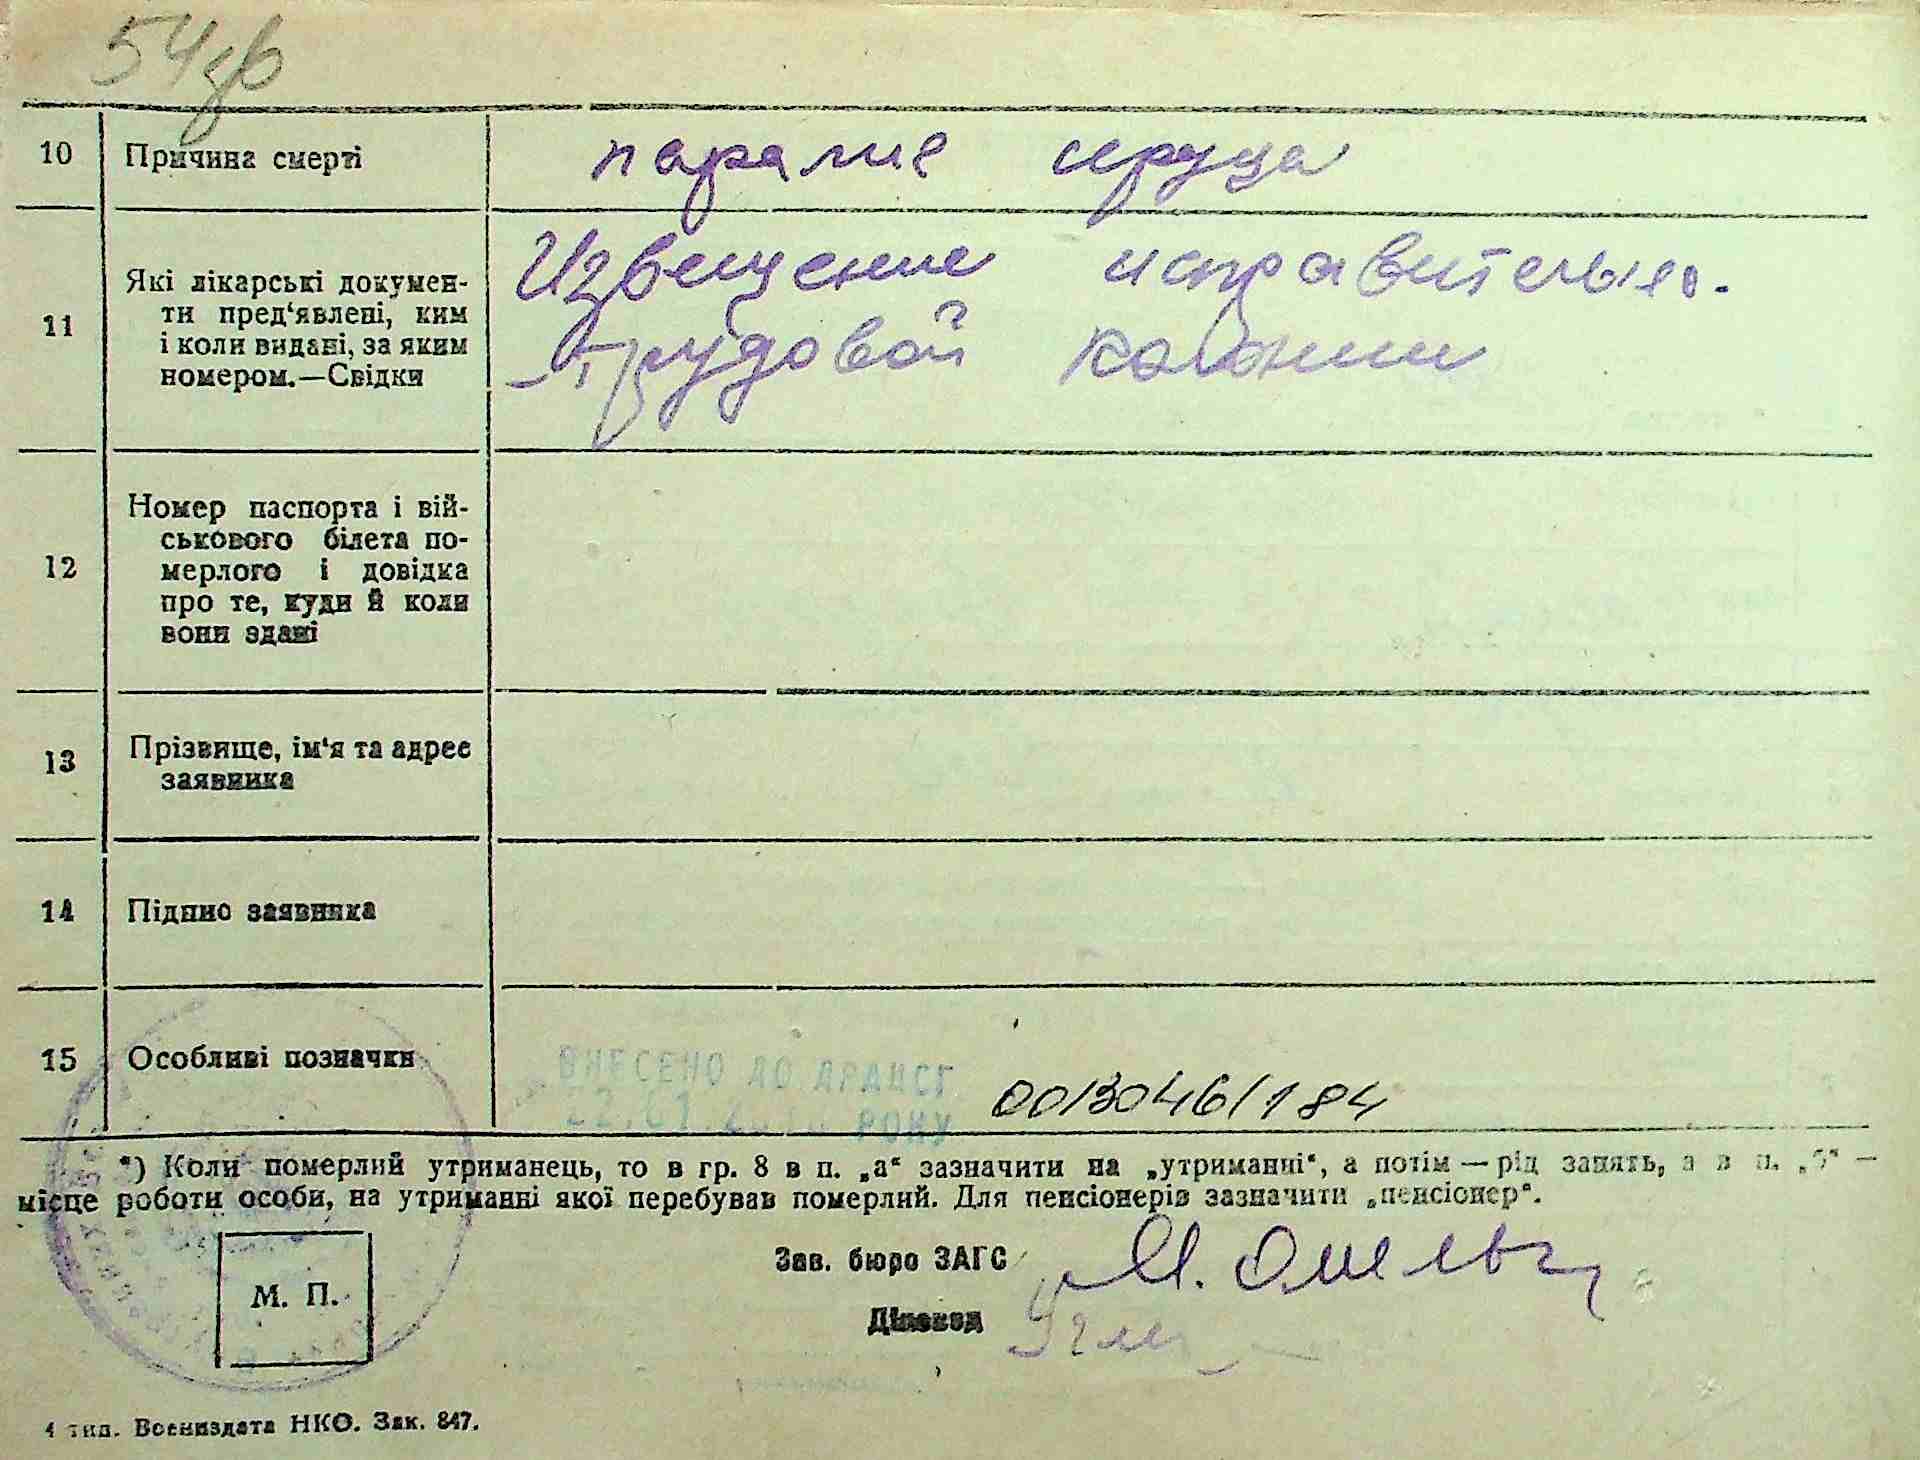 54зв
10 Причина смерті паралич сердца
11 Які лікарські докумен-
ти пред‘явлені, ким
і коли видані, за яким
номером.—Свідки
Извещение исправительно-
-трудовой колонии
12 Номер паспорта і вій-
ськового білета по-
мерлого і довідка
про те, куди й коли
вони здані
13 Прізвище, ім‘я та адрес
заявника
14 Підпис заявника
15 Особливі позначки
ВНЕСЕНО ДО ДРАЦСГ
РОКУ
0013046/184
*) Коли померлий утриманець, то в гр. 8 в п. „а“ зазначити на „утриманні“, а потім — рід занять, а в п. „б“ —
місце роботи особи, на утриманні якої перебував померлий. Для пенсіонерів зазначити „пенсіонер“.
М. П.
Зав. бюро ЗАГС
Діловод
4 тип. Воениздата НКО. Зак. 847.